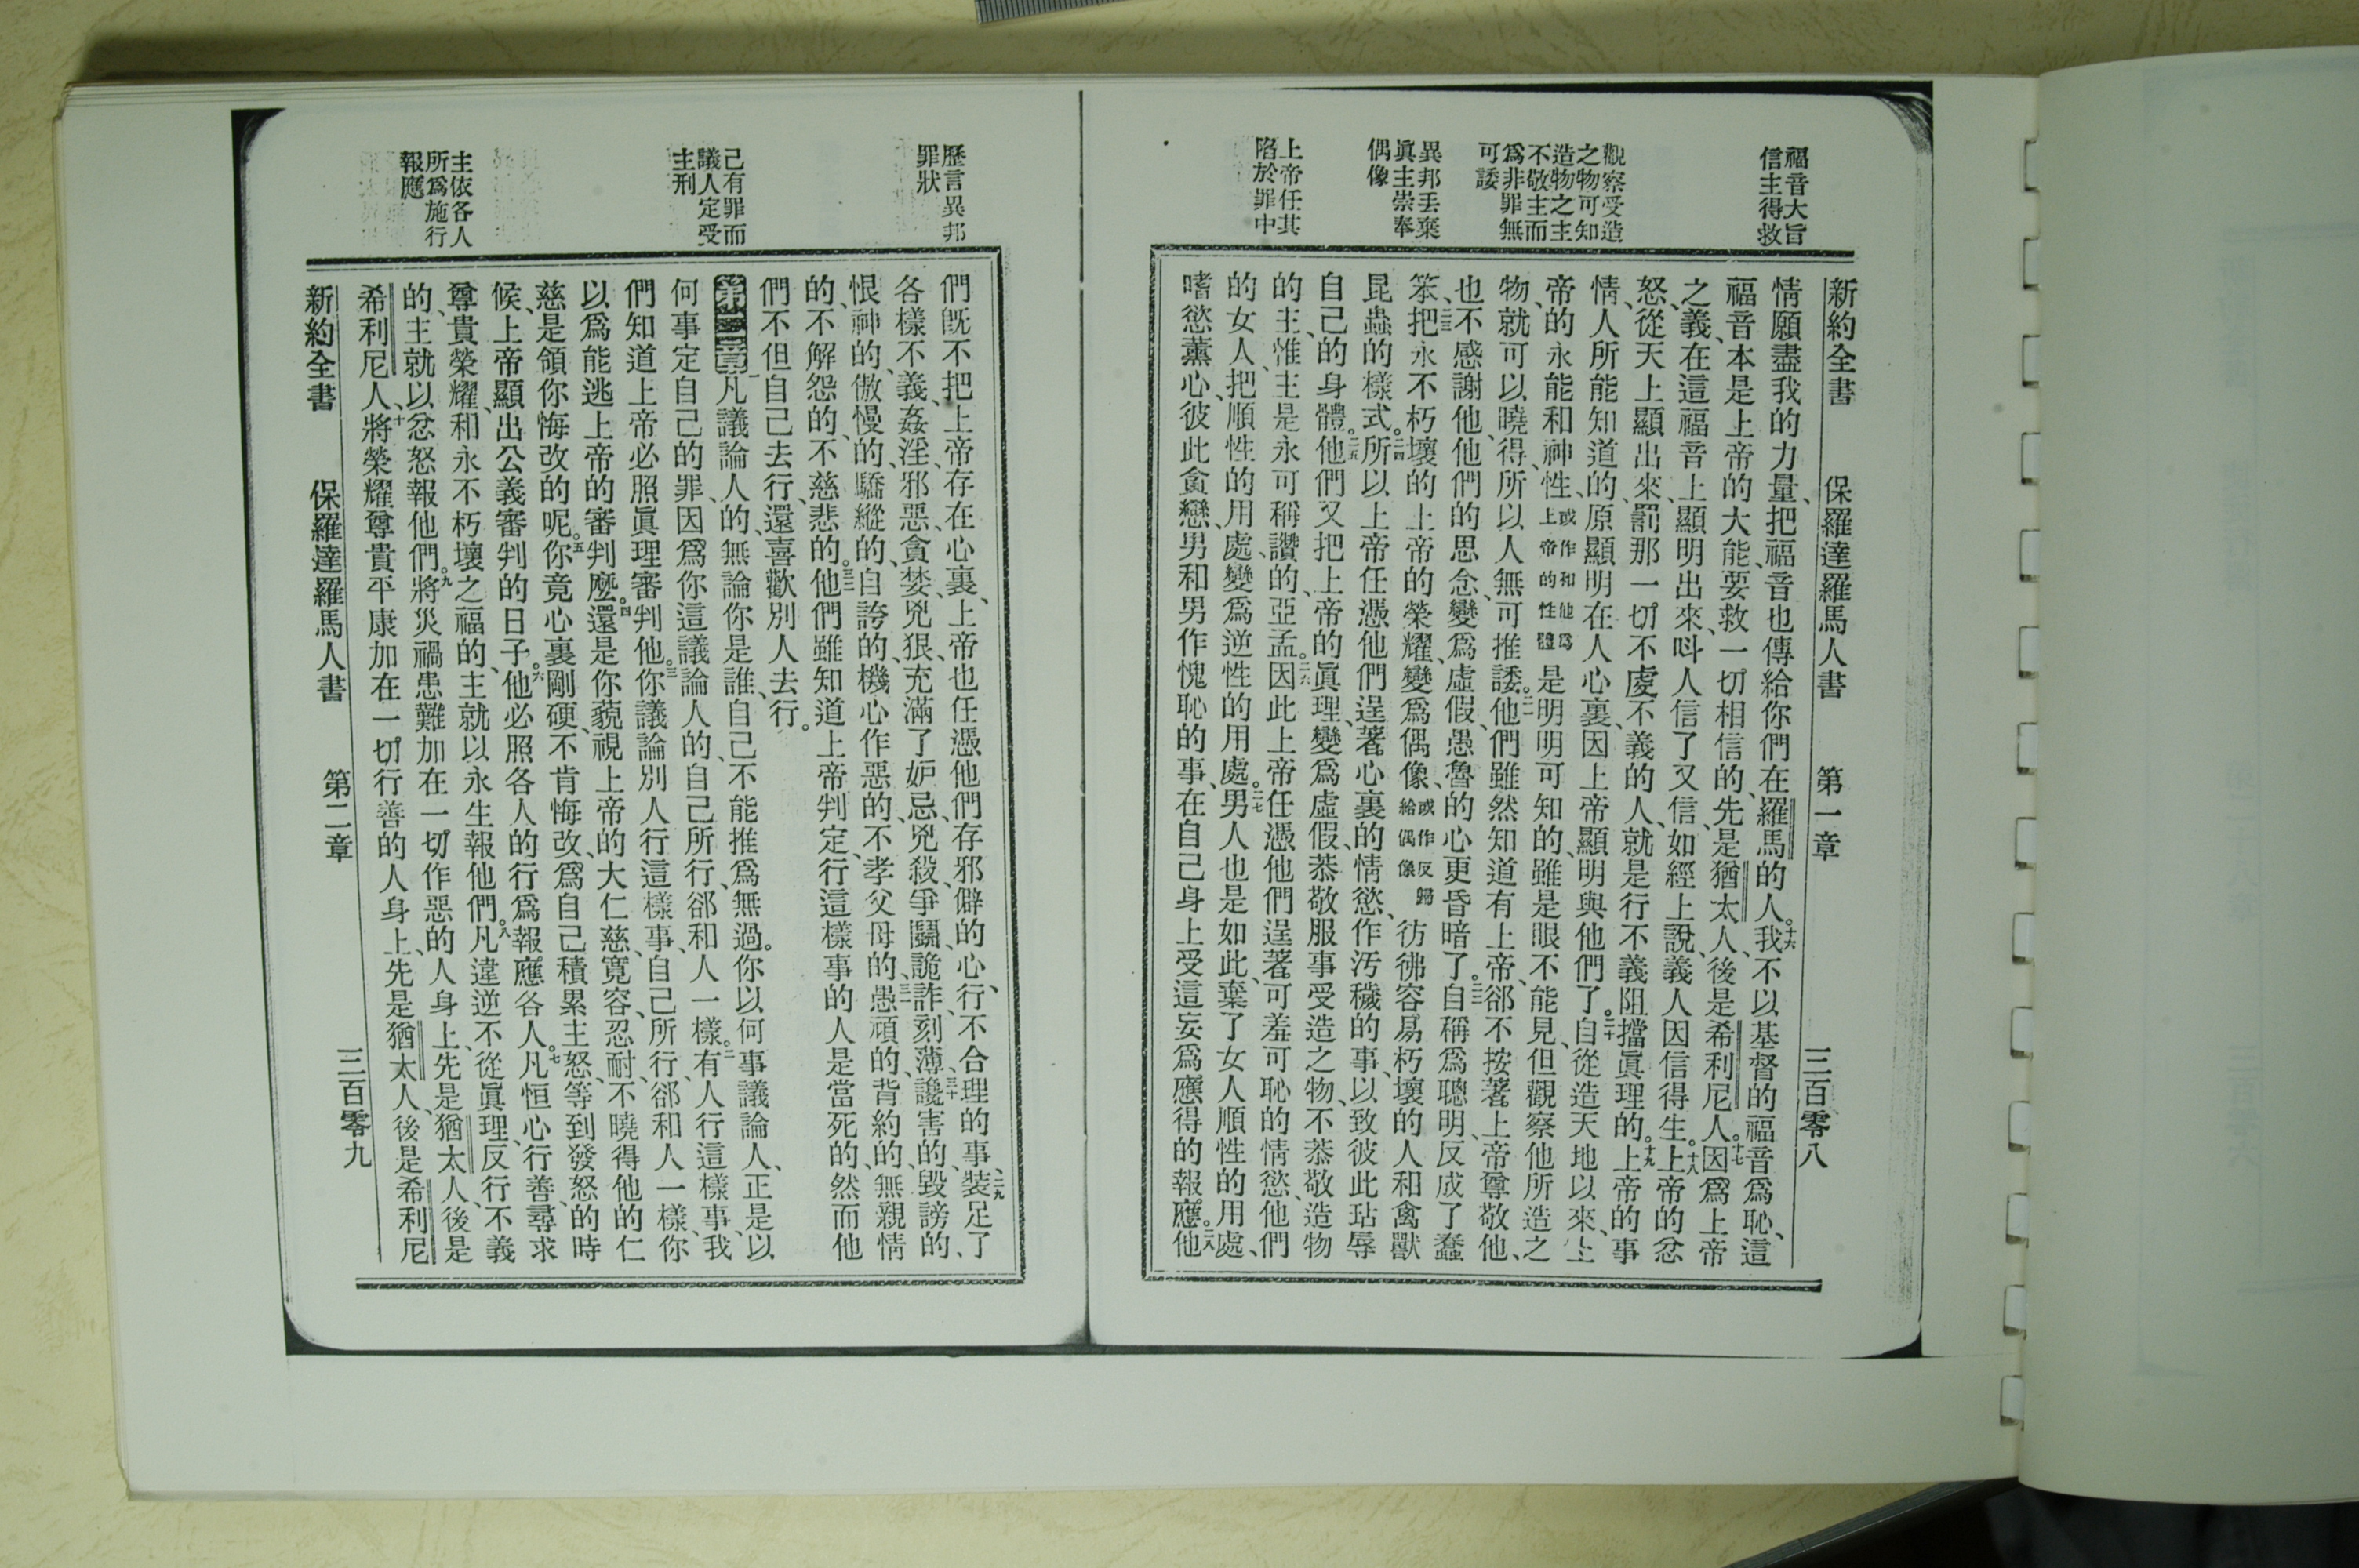 新約全書　保羅達羅馬人書　第一章　三百零八
福音大旨
信主得救
觀察受造
之物可知
造物之主
不敬主而
爲非罪無
可諉
異邦丟棄
眞主崇奉
偶像
上帝任其
陷於罪中
情願盡我的力量、把福音也傳給你們在羅馬的人。十六我不以基督的福音爲恥、這
福音本是上帝的大能、要救一切相信的、先是猶太人、後是希利尼人。十七因爲上帝
之義、在這福音上顯明出來、呌人信了又信、如經上說、義人因信得生。十八上帝的忿
怒、從天上顯出來、罰那一切不虔不義的人、就是行不義阻擋眞理的。十九上帝的事
情、人所能知道的、原顯明在人心裏、因上帝顯明與他們了。二十自從造天地以來、上
帝的永能和神性、或作和他爲上帝的性體是明明可知的、雖是眼不能見、但觀察他所造之
物、就可以曉得、所以人無可推諉。二一他們雖然知道有上帝、郤不按著上帝尊敬他、
也不感謝他、他們的思念、變爲虛假、愚魯的心更昏暗了。二二自稱爲聰明、反成了蠢
笨、二三把永不朽壞的上帝的榮耀、變爲偶像、或作反歸給偶像彷彿容易朽壞的人和禽獸
昆蟲的樣式。二四所以上帝任憑他們逞著心裏的情慾、作汚穢的事、以致彼此玷辱
自己的身體。二五他們又把上帝的眞理、變爲虛假、恭敬服事受造之物、不恭敬造物
的主、惟主是永可稱讚的、亞孟。二六因此上帝任憑他們逞著可羞可恥的情慾、他們
的女人、把順性的用處、變爲逆性的用處。二七男人也是如此、棄了女人順性的用處、
嗜慾薰心、彼此貪戀、男和男作愧恥的事、在自己身上受這妄爲應得的報應。二八他
歷言異邦
罪狀
己有罪而
議人定受
主刑
主依各人
所爲施行
報應
們旣不把上帝存在心裏、上帝也任憑他們存邪僻的心、行不合理的事、二九裝足了
各樣不義、姦淫、邪惡、貪婪、兇狠、充滿了妒忌、兇殺、爭鬬、詭詐、刻薄、三十讒害的、毀謗的、
恨神的、傲慢的、驕縱的、自誇的、機心作惡的、不孝父母的、三一愚頑的、背約的、無親情
的、不解怨的、不慈悲的。三二他們雖知道上帝判定、行這樣事的人是當死的、然而他
們不但自己去行、還喜歡別人去行。
第二章一凡議論人的、無論你是誰、自己不能推爲無過。你以何事議論人、正是以
何事定自己的罪、因爲你這議論人的、自己所行、郤和人一樣。二有人行這樣事、我
們知道上帝必照眞理審判他。三你議論別人行這樣事、自己所行、郤和人一樣、你
以爲能逃上帝的審判麼。四還是你藐視上帝的大仁慈、寬容、忍耐、不曉得他的仁
慈、是領你悔改的呢。五你竟心裏剛硬、不肯悔改、爲自己積累主怒、等到發怒的時
候、上帝顯出公義審判的日子。六他必照各人的行爲報應各人。七凡恒心行善、尋求
尊貴榮耀、和永不朽壞之福的、主就以永生報他們。八凡違逆不從眞理、反行不義
的、主就以忿怒報他們。九將災禍患難加在一切作惡的人身上、先是猶太人、後是
希利尼人、十將榮耀尊貴平康加在一切行善的人身上、先是猶太人、後是希利尼
新約全書　保羅達羅馬人書　第二章　三百零九